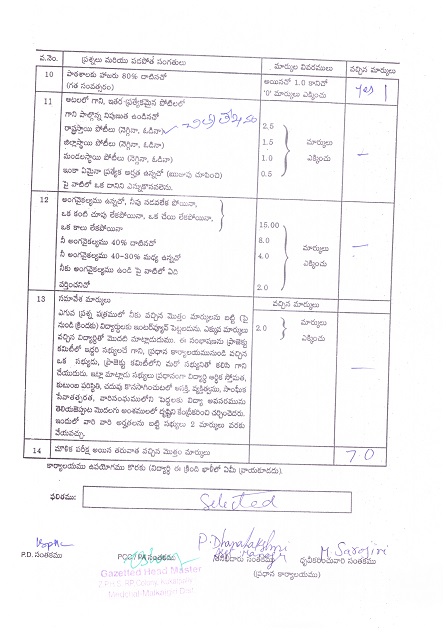 వ.నెం. ప్రశ్నలు మరియు పదపోత సంగతులు మార్కుల వివరములు వచ్చిన మార్కులు
10 పాఠశాలకు హాజరు 80% దాటినచో అయినచో 1.0 కానిచో yes
(గత సంవత్సరం) '0' మార్కులు ఎక్కించు
11 ఆటలలో గాని, ఇతర ప్రత్యేకమైన పోటిలలో
గాని పాల్గొన్న నిపుణత ఉండినచో
రాష్ట్రస్థాయి పోటీలు (నెగ్గినా, ఓడినా) 2.5
జిల్లాస్థాయి పోటీలు (నెగ్గినా, ఓడినా) 1.5 మార్కులు
మండలస్థాయి పోటీలు (నెగ్గినా, ఓడినా) 1.0 ఎక్కించు
ఇంకా ఏమైనా ప్రత్యేక అర్హత ఉన్నచో (ఋజువు చూపించి) 0.5
పై వాటిలో ఒక దానిని ఎన్నుకొనవలెను.
12 అంగవైకల్యము ఉన్నచో, నీవు నడవలేక పోయినా,
ఒక కంటి చూపు లేకపోయినా, ఒక చేయి లేకపోయినా,
ఒక కాలు లేకపోయినా 15.00
నీ అంగవైకల్యము 40% దాటినచో 8.0 మార్కులు
నీ అంగవైకల్యము 40-30% మధ్య ఉన్నచో 4.0 ఎక్కించు
నీకు అంగవైకల్యము ఉండి పై వాటిలో ఏది
వర్తించనిచో 2.0
13 సమావేశ మార్కులు వచ్చిన మార్కులు
ఎగువ ప్రశ్న పత్రములో నీకు వచ్చిన మొత్తం మార్కులను బట్టి (పై
నుండి క్రిందకు) విద్యార్థులకు ఇంటర్వ్యూన్ పెట్టబడును. ఎక్కువ మార్కులు 2.0 మార్కులు
వచ్చిన విద్యార్థితో మొదటి మాట్లాడుదుము. ఈ సంభాషణను ప్రాజెక్టు ఎక్కించు
కమిటీలో ఇద్దరి సభ్యులచే గాని, ప్రధాన కార్యాలయమునుండి వచ్చిన
ఒక సభ్యుడు, ప్రాజెక్టు కమిటీలోని మరో సభ్యునితో కలిసి గాని
చేయుదురు. ఇట్లా మాట్లాడు సభ్యులు ప్రధానంగా విద్యార్థి ఆర్థిక స్తోమత,
కుటుంబ పరిస్థితి, చదువు కొనసాగించుటలో ఆసక్తి, వ్యక్తిత్వము, సాంఘిక
సేవాతత్పరత, వారినంపములోని పెద్దలకు విద్యా అవసరమును
తెలియజెప్పుట మొదలగు అంశములలో దృష్టిని కేంద్రీకరించి చర్చించెదరు.
ఇందులో వారి వారి అర్హతలను బట్టి సభ్యులు 2 మార్కులు వరకు
వేయవచ్చు.
14 మౌళిక పరీక్ష అయిన తరువాత వచ్చిన మొత్తం మార్కులు 70
కార్యాలయము ఉపయోగము కొరకు (విద్యార్థి ఈ క్రింది ఖాళీలో ఏమీ వ్రాయకూడదు).
ఫలితము: Selected
P. Dhanalakshmi
M. Sarojini
P.D. సంతకము సంతకము ధృవీకరించువారి సంతకము
Gazetted Head Master (ప్రధాన కార్యాలయము)